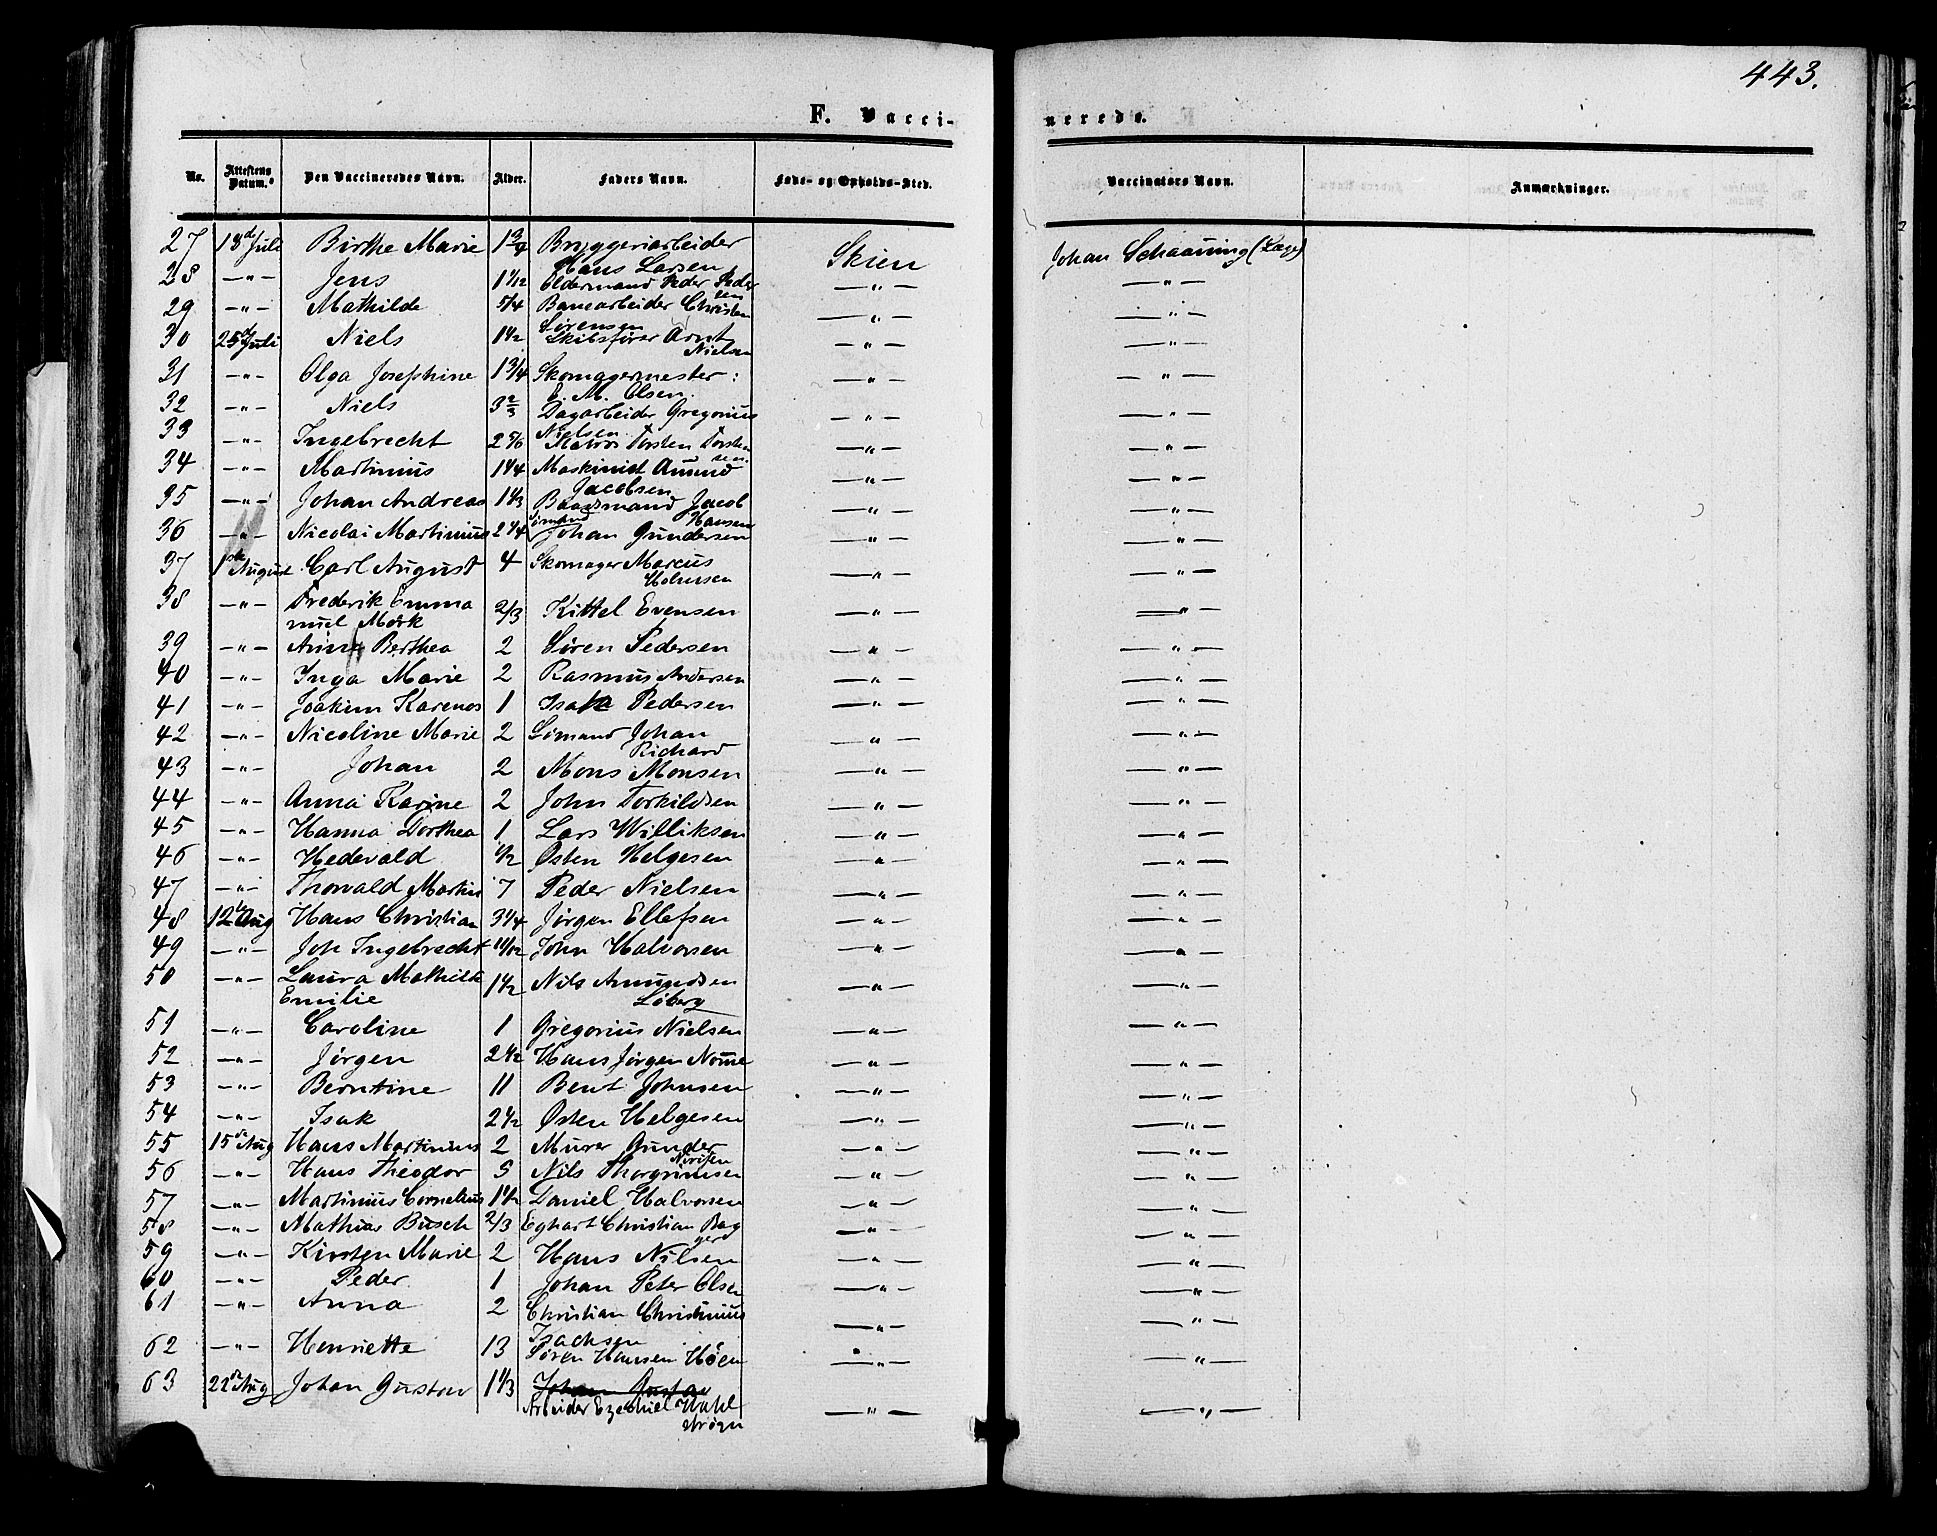 443.
F. Vacci- nerede.
No. Attestens Datum. Den Vaccineredes Navn. Alder. Faders Navn. Føde- og Opholds-Sted. Vaccinators Navn. Anmærkninger.
27 18de Juli Birthe Marie 1 3/4 Bryggeriarbeider Skien Johan Schaanning (Læge)
Hans Larsen
28 -"- Jens 1 1/12 Oldermand Peder Peder -"- -"-
sen
29 -"- Mathilde 5/4 Banearbeider Christen -"- -"-
Sørensen
30 25de Juli Niels 1 1/2 Skibsfører Arnt -"- -"-
Nielsen
31 -"- Olga Josephine 1 3/4 Skomagermester: -"- -"-
E. M. Olsen.
32 -"- Niels 3 2/3 Dagarbeider Gregorius -"- -"-
Nielsen
33 -"- Ingebrecht 2 5/6 Matros Torsten Torsten -"- -"-
sen.
34 -"- Martinius 1 1/4 Maskinist Amund -"- -"-
Jacobsen
35 -"- Johan Andreas 1 1/3 Baadsmand Jacob -"- -"-
Hansen
36 -"- Nicolai Martinius 2 1/4 Sømand Johan Gundersen -"- -"-
37 1ste August Carl August 4 Skomager Marcus -"- -"-
Halvorsen
38 -"- Frederik Emma 2/3 Kittel Evensen -"- -"-
nuel Mørk
39 -"- Anne Berthea 2 Søren Pedersen -"- -"-
40 -"- Inga Marie 2 Rasmus Andersen -"- -"-
41 -"- Joakim Karenos 1 Isak Pedersen -"- -"-
42 -"- Nicoline Marie 2 Sømand Johan -"- -"-
Richard
43 -"- Johan 2 Mons Monsen -"- -"-
44 -"- Anna Karine 2 John Torkildsen -"- -"-
45 -"- Hanna Dorthea 1 Lars Williksen -"- -"-
46 -"- Hedevald 1/2 Østen Helgesen -"- -"-
47 -"- Thorvald Martin 7 Peder Nielsen -"- -"-
48 12te Aug Hans Christian 3 1/4 Jørgen Ellefsen -"- -"-
49 -"- Joh Ingebrecht 11/12 John Halvorsen -"- -"-
50 -"- Laura Mathilde 1 1/2 Nils Amundsen -"- -"-
Emilie Løberg
51 -"- Caroline 1 Gregorius Nielsen -"- -"-
52 -"- Jørgen 2 1/2 Hans Jørgen Nome -"- -"-
53 -"- Berntine 11 Bent Johnsen -"- -"-
54 -"- Isak 2 1/2 Østen Helgesen -"- -"-
55 15de Aug Hans Martinius 2 Murer Gunder -"- -"-
56 -"- Hans Theodor 5 Nils Thorgrimsen -"- -"-
57 -"- Martinius Cornelius 1 1/2 Daniel Halvorsen -"- -"-
58 -"- Mathias Busch 2/3 Eghart Christian Bag -"- -"-
gerd
59 -"- Kirsten Marie 2 Hans Nilsen -"- -"-
60 -"- Peder 1 Johan Peter Olsen -"- -"-
61 -"- Anna 2 Christian Christinius -"- -"-
Isachsen
62 -"- Henriette 13 Søren Hansen Høen -"- -"-
63 22de Aug Johan Gustav 1 1/3 Johan Gustav -"- -"-
Arbeider Ezechiel Wahl
strøm